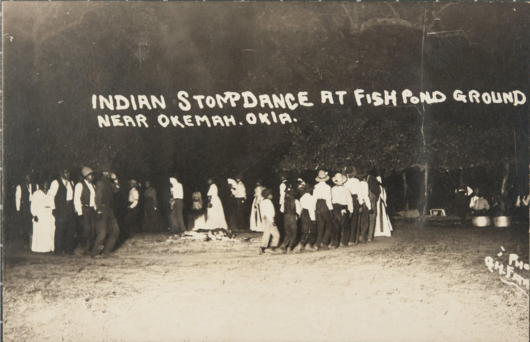 INDIAN STOMPDANCE AT FISH POND GROUND
NEAR OKEMAH. OKIA.
PHO